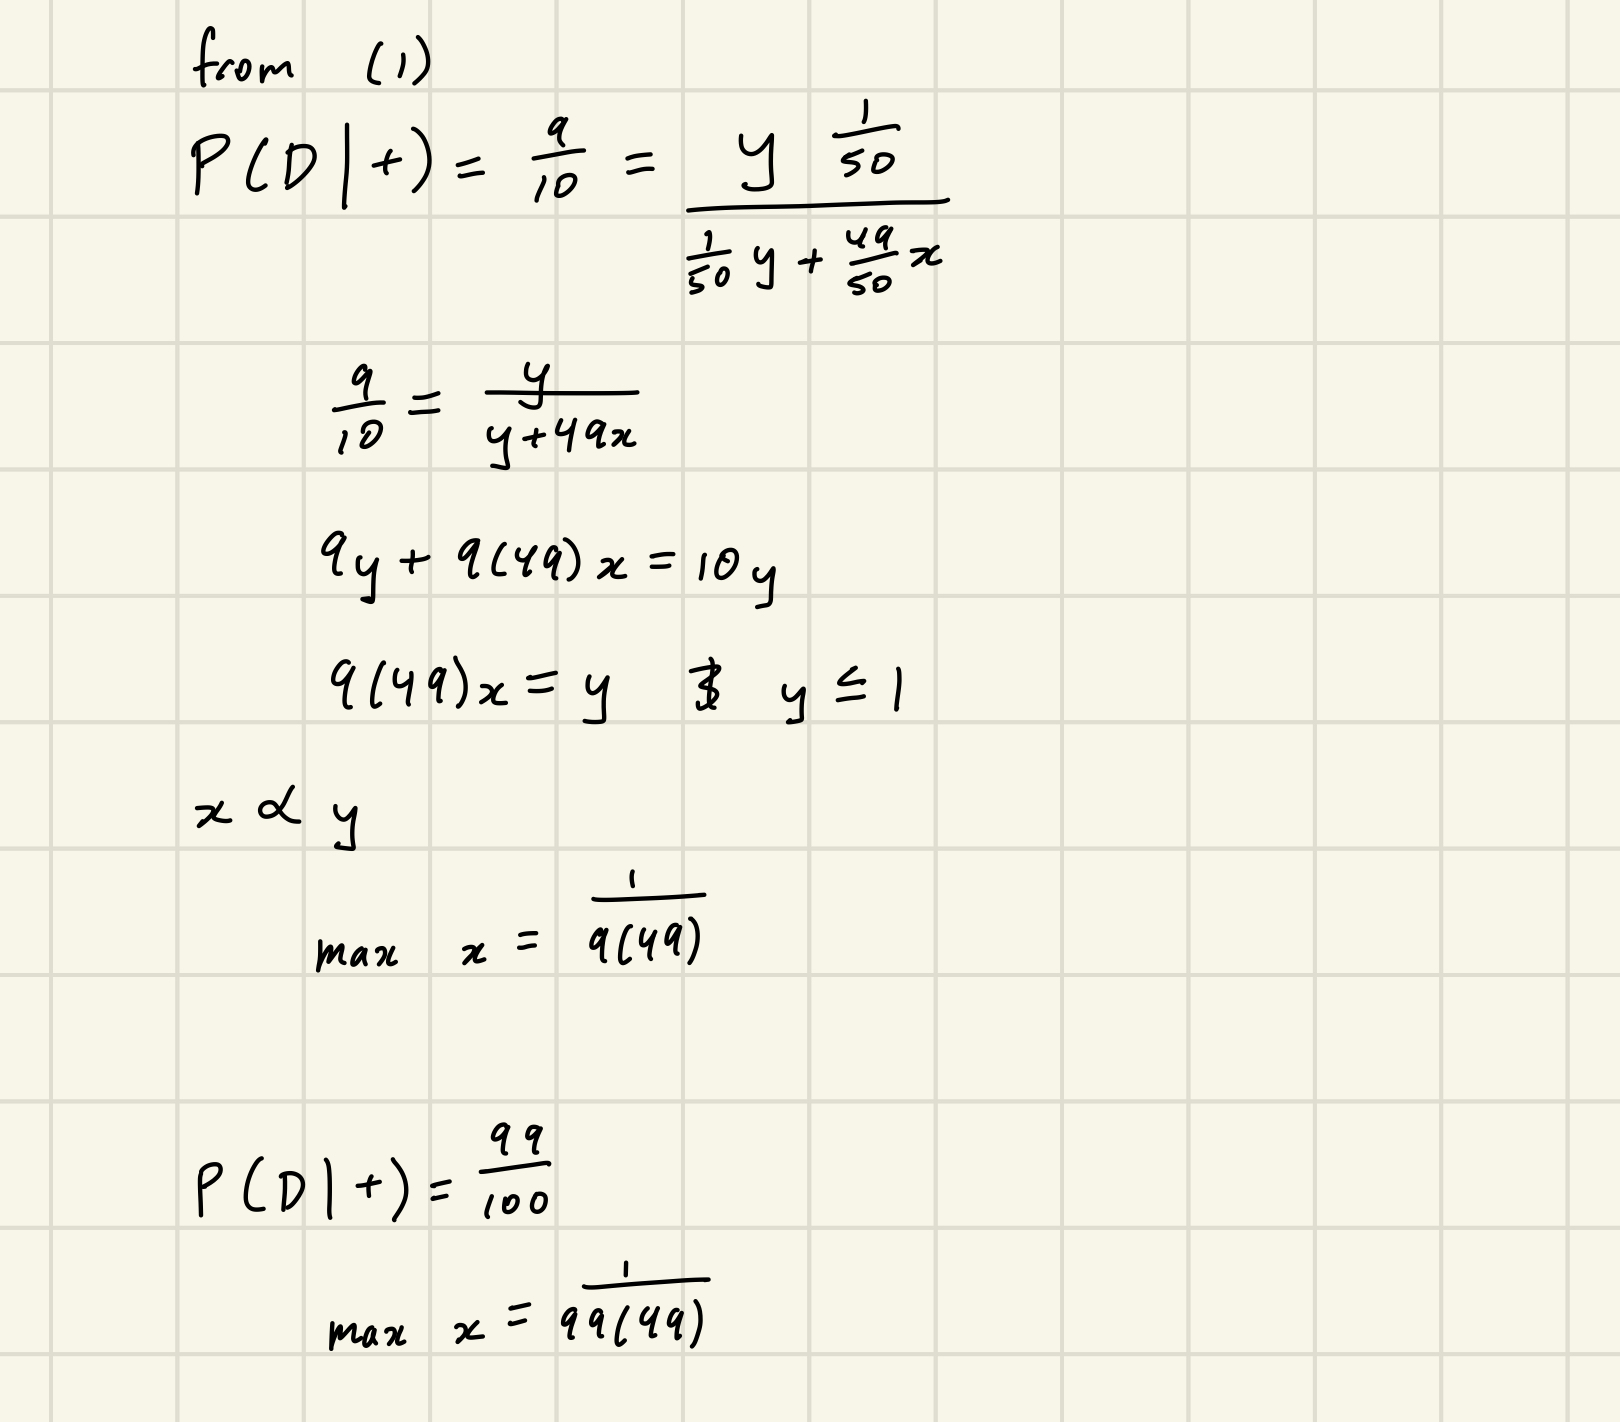 from (1)
P(D|+) = 9/10 = (y 1/50)/(1/50 y + 49/50 x)
9/10 = y/(y+49x)
9y + 9(49)x = 10y
9(49)x = y y ≤ 1
x ∝ y
max x = 1/(9(49))
P(D|+) = 99/100
max x = 1/(99(49))